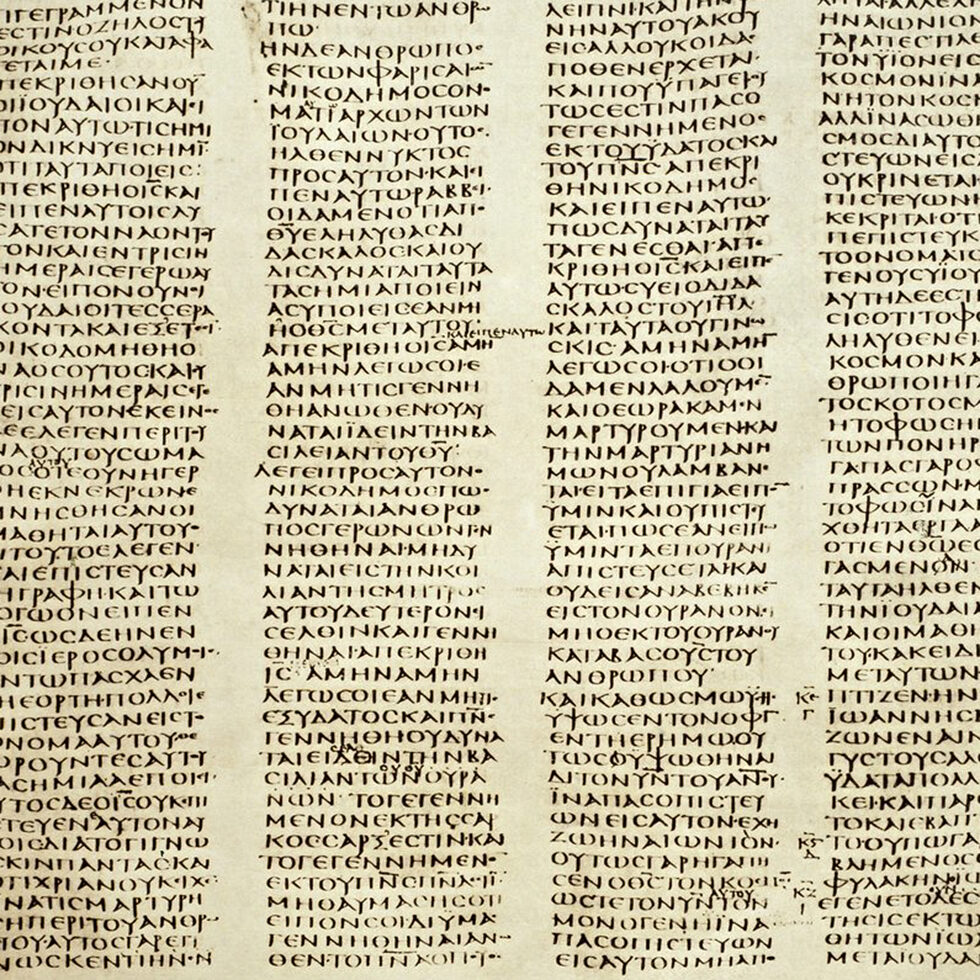 ΓΕΓΡΑΜΜΕΝΟΝ
ΕCΤΙΝΟΖΗΛΟCΤ
ΟΙΚΟΥCΟΥΚΑΤΑΦΑ
ΓΕΤΑΙΜΕ·
ΠΕΚΡΙΘΗCΑΝΟΥ
ΟΙΪΟΥΔΑΙΟΙΚΑΙ
ΤΟΝΑΥΤΩΤΙCΗΜΙ
ΟΝΔΙΚΝΥΕΙCΗΜΙ
ΟΤΙΤΑΥΤΑΠΟΙΕΙC:
ΠΕΚΡΙΘΗΟΙCΚΑΙ
ΕΙΠΕΝΑΥΤΟΙCΛΥ
CΑΤΕΤΟΝΝΑΟΝΤΥ
ΤΟΝΚΑΙΕΝΤΡΙCΙΝ
ΗΜΕΡΑΙCΕΓΕΡΩΑΥ
ΤΟΝ·ΕΙΠΟΝΟΥΝ·Ι
ΟΥΔΑΙΟΙΤΕCCΕΡΑ
ΚΟΝΤΑΚΑΙΕΞΕΤ
ΟΙΚΟΔΟΜΗΘΗΟ
ΝΑΟCΟΥΤΟCΚΑΙ
ΡΙCΙΝΗΜΕΡΑΙC
ΕΙCΑΥΤΟΝΕΚΕΙΝ
ΔΕΕΛΕΓΕΝΠΕΡΙΤΥ
ΝΑΟΥΤΟΥCΩΜΑ
ΟCΟΤΕΟΥΝΗΓΕΡ
ΘΗΕΚΝΕΚΡΩΝΕ
ΜΝΗCΘΗCΑΝΟΙ
ΜΑΘΗΤΑΙΑΥΤΟΥ
ΤΙΤΟΥΤΟΕΛΕΓΕΝ
ΚΑΙΕΠΙCΤΕΥCΑΝ
ΗΓΡΑΦΗΚΑΙΤΩ
ΟΓΩΟΝΕΙΠΕΝ
ΙCΩCΔΕΗΝΕΝ
ΟΙCΙΕΡΟCΟΛΥΜ·
ΝΤΩΠΑCΧΑΕΝ
ΗΕΟΡΤΗΠΟΛΛΟΙΕ
ΠΙCΤΕΥCΑΝΕΙCΤ
ΟΝΟΜΑΑΥΤΟΥ
ΩΡΟΥΝΤΕCΑΥΤΥ
ΑCΗΜΙΑΑΕΠΟΙΕΙ
ΥΤΟCΔΕΟΙCΟΥΚΕΠΙ
CΤΕΥΕΝΑΥΤΟΝΑΥ
ΟΙCΔΙΑΤΟΓΙΓΝΩ
CΚΙΝΠΑΝΤΑCΚΑΙ
ΟΤΙΧΡΙΑΝΟΥΚΙΧΕ
ΝΑΤΙCΜΑΡΤΥΡΗ
CΗΠΕΡΙΤΟΥΑΝΟΥ
ΠΟΥ·ΑΥΤΟCΓΑΡΕΓΙ
ΝΩCΚΕΝΤΙΗΝΕΝ
ΤΙΗΝΕΝΤΩΑΝΟΡ
ΠΩ·
ΗΝΔΕΑΝΘΡΩΠΟC
ΕΚΤΩΝΦΑΡΙCΑΙ
ΝΙΚΟΔΗΜΟCΟΝΟ
ΜΑΤΙΑΡΧΩΝΤΩΝ
ΪΟΥΔΑΙΩΝ·ΟΥΤΟC
ΗΛΘΕΝΝΥΚΤΟC
ΠΡΟCΑΥΤΟΝ·ΚΑΙΕΙ
ΠΕΝΑΥΤΩΡΑΒΒΙ·
ΟΙΔΑΜΕΝΟΤΙΑΠΟ
ΘΥΕΛΗΛΥΘΑCΔΙ
ΔΑCΚΑΛΟCΚΑΙΟΥ
ΔΙCΔΥΝΑΤΑΙΤΑΥΤΑ
ΤΑCΗΜΙΑΠΟΙΕΙΝ
ΑCΥΠΟΙΕΙCΕΑΝΜΗ
ΗΟΘCΜΕΤΑΥΤΟΥ
ΚΑΙΕΙΠΕΝΑΥΤΩ
ΑΠΕΚΡΙΘΗΟΙCΑΜΗ
ΑΜΗΝΛΕΓΩCΟΙΕ
ΑΝΜΗΤΙCΓΕΝΝΗ
ΘΗΑΝΩΘΕΝ·ΟΥΔΥ
ΝΑΤΑΙΪΔΕΙΝΤΗΝΒΑ
CΙΛΕΙΑΝΤΟΥΟΥ·
ΛΕΓΕΙΠΡΟCΑΥΤΟΝ·
ΝΙΚΟΔΗΜΟCΠΩC
ΔΥΝΑΤΑΙΑΝΘΡΩ
ΠΟCΓΕΡΩΝΩΝΓΕΝ
ΝΗΘΗΝΑΙ·ΜΗΔΥ
ΝΑΤΑΙΕΙCΤΗΝΚΟΙ
ΛΙΑΝΤΗCΜΗΤΡΟC
ΑΥΤΟΥΔΕΥΤΕΡΟΝ·Ι
CΕΛΘΙΝΚΑΙΓΕΝΝΗ
ΘΗΝΑΙ·ΑΠΕΚΡΙΘΗ
ΙC·ΑΜΗΝΑΜΗΝ
ΛΕΓΩCΟΙΕΑΝΜΗΤΙC
ΕΞΥΔΑΤΟCΚΑΙΠΝC
ΓΕΝΝΗΘΗΟΥΔΥΝΑ
ΤΑΙΕΙΔΕΙΝΤΗΝΒΑ
CΙΛΙΑΝΤΩΝΟΥΡΑ
ΝΩΝ·ΤΟΓΕΓΕΝΝΗ
ΜΕΝΟΝΕΚΤΗCCΑΡ
ΚΟCCΑΡΞΕCΤΙΝ·ΚΑΙ
ΤΟΓΕΓΕΝΝΗΜΕΝ·
ΕΚΤΟΥΠΝCΠΝΑΕ
ΜΗΘΑΥΜΑCΗCΟΤΙ
ΕΙΠΟΝCΟΙΔΥΜΑC
ΓΕΝΝΗΘΗΝΑΙΑΝΩ
ΘΕΝ·ΤΟΠΝΑΟΠΟΥ
ΛΕΙΠΝΙΚΑΙΤΗΝΦΩ
ΝΗΝΑΥΤΟΥΑΚΟΥ
ΕΙCΑΛΛΟΥΚΟΙΔΑC
ΠΟΘΕΝΕΡΧΕΤΑΙ·
ΚΑΙΠΟΥΫΠΑΓΕΙ
ΤΩCΕCΤΙΝΠΑCΟ
ΓΕΓΕΝΝΗΜΕΝΟC
ΕΚΤΟΥΫΔΑΤΟCΚΑΙ
ΤΟΥΠΝCΑΠΕΚΡΙ
ΘΗΝΙΚΟΔΗΜΟC
ΚΑΙΕΙΠΕΝΑΥΤΩ·
ΠΩCΔΥΝΑΤΑΙΤΑΥ
ΤΑΓΕΝΕCΘΑΙ·ΑΠΕ
ΚΡΙΘΗΟΙCΚΑΙΕΙΠΕ
ΑΥΤΩ·CΥΕΙΟΔΙΔΑ
CΚΑΛΟCΤΟΥΙΗΛ
ΚΑΙΤΑΥΤΑΟΥΓΙΝΩ
CΚΙC·ΑΜΗΝΑΜΗΝ
ΛΕΓΩCΟΙΟΤΙΟΟΙ
ΔΑΜΕΝΛΑΛΟΥΜΕ
ΚΑΙΟΕΩΡΑΚΑΜΕΝ
ΜΑΡΤΥΡΟΥΜΕΝΚΑΙ
ΤΗΝΜΑΡΤΥΡΙΑΝΗ
ΜΩΝΟΥΛΑΜΒΑΝΕ
ΤΑΙ·ΕΙΤΑΕΠΙΓΙΑΕΙΠ
ΥΜΙΝΚΑΙΟΥΠΙCΤΕΥ
ΕΤΑΙ·ΠΩCΕΑΝΕΙΠ
ΫΜΙΝΤΑΕΠΟΥΡΑΝΙ
ΑΠΙCΤΕΥCΕΤΑΙ·ΚΑΙ
ΟΥΔΕΙCΑΝΑΒΕΒΗΚΕ
ΕΙCΤΟΝΟΥΡΑΝΟΝ·
ΜΗΟΕΚΤΟΥΟΥΡΑΝΥ
ΚΑΤΑΒΑCΟΥCΤΟΥ
ΑΝΘΡΩΠΟΥ·
ΚΑΙΚΑΘΩCΜΩΫCΗC
ΥΨΩCΕΝΤΟΝΟΦΙ
ΕΝΤΗΕΡΗΜΩΟΥ
ΤΩCΟΥΨΩΘΗΝΑΙ
ΔΙΤΟΝΥΝΤΟΥΑΝΥ
ΪΝΑΠΑCΟΠΙCΤΕΥ
ΩΝΕΙCΑΥΤΟΝΕΧΗ
ΖΩΗΝΑΙΩΝΙΟΝ·
ΟΥΤΩCΓΑΡΗΓΑΠΗ
CΕΝΟΘCΤΟΝΚΟCΜ
ΩCΤΕΤΟΝΥΝΤΟΝ
ΜΟΝΟΓΕΝΗΪΝΑ
ΠΑCΟΠΙCΤΕΥΩΝ
ΕΙCΑΥΤΟΝΜΗΑΠΟ
ΗΝΑΙΩΝΙΟΝ
ΓΑΡΑΠΕCΤΙΛΕ
ΤΟΝΫΙΟΝΕΙC
ΚΟCΜΟΝΙΝΑ
ΝΗΤΟΝΚΟC
ΑΛΛΙΝΑCΩΘΗ
CΜΟCΔΙΑΥΤΟ
CΤΕΥΩΝΕΙC
ΟΥΚΡΙΝΕΤΑΙ
ΠΙCΤΕΥΩΝΗ
ΚΕΚΡΙΤΑΙ·ΟΤΙ
ΠΕΠΙCΤΕΥΚ
ΤΟΟΝΟΜΑΙC
ΓΕΝΟΥCΥΪΟΥ
ΑΥΤΗΔΕΕCΤΙ
CΙCΟΤΙΤΟΦ
ΛΗΛΥΘΕΝΕΙ
ΚΟCΜΟΝΚΑ
ΘΡΩΠΟΙΗΓ
ΤΟCΚΟΤΟCΜ
ΗΤΟΦΩCΗ
ΤΩΝΠΟΝΗΡ
ΓΑΠΑCΓΑΡΟ
ΠΡΑCCΩΝ·Μ
ΤΟΦΩCΪΝΑ
ΧΘΗΤΑΕΡΓΑΑ
ΟΤΙΕΝΘΩΕC
ΓΑCΜΕΝΟΝ
ΤΑΥΤΑΗΛΘΕΝ
ΤΗΝΪΟΥΔΑΙΑ
ΚΑΙΟΙΜΑΘΗ
ΤΟΥ·ΚΑΚΕΙΔΙ
ΜΕΤΑΥΤΩΝ
ΚΕ
Γ
ΠΤΙΖΕΝ·ΗΝ
ΪΩΑΝΝΗCΒ
ΖΩΝΕΝΑΙΝ
ΓΥCΤΟΥCΑΛΙ
ΫΔΑΤΑΠΟΛΛΑ
ΚΕΙ·ΚΑΙΠΑΡ
ΤΟΚΑΙΕΒΑΠ
ΚϚ
Δ
ΤΟ·ΟΥΠΩΓΑ
ΒΛΗΜΕΝΟC
ΚΖ
Ι
ΦΥΛΑΚΗΝ
ΕΓΕΝΕΤΟΔΕC
ΤΗCΙCΕΚΤΩ
ΘΗΤΩΝΪΩΑ
ΜΕΤΑΪΟΥΔΑΙ